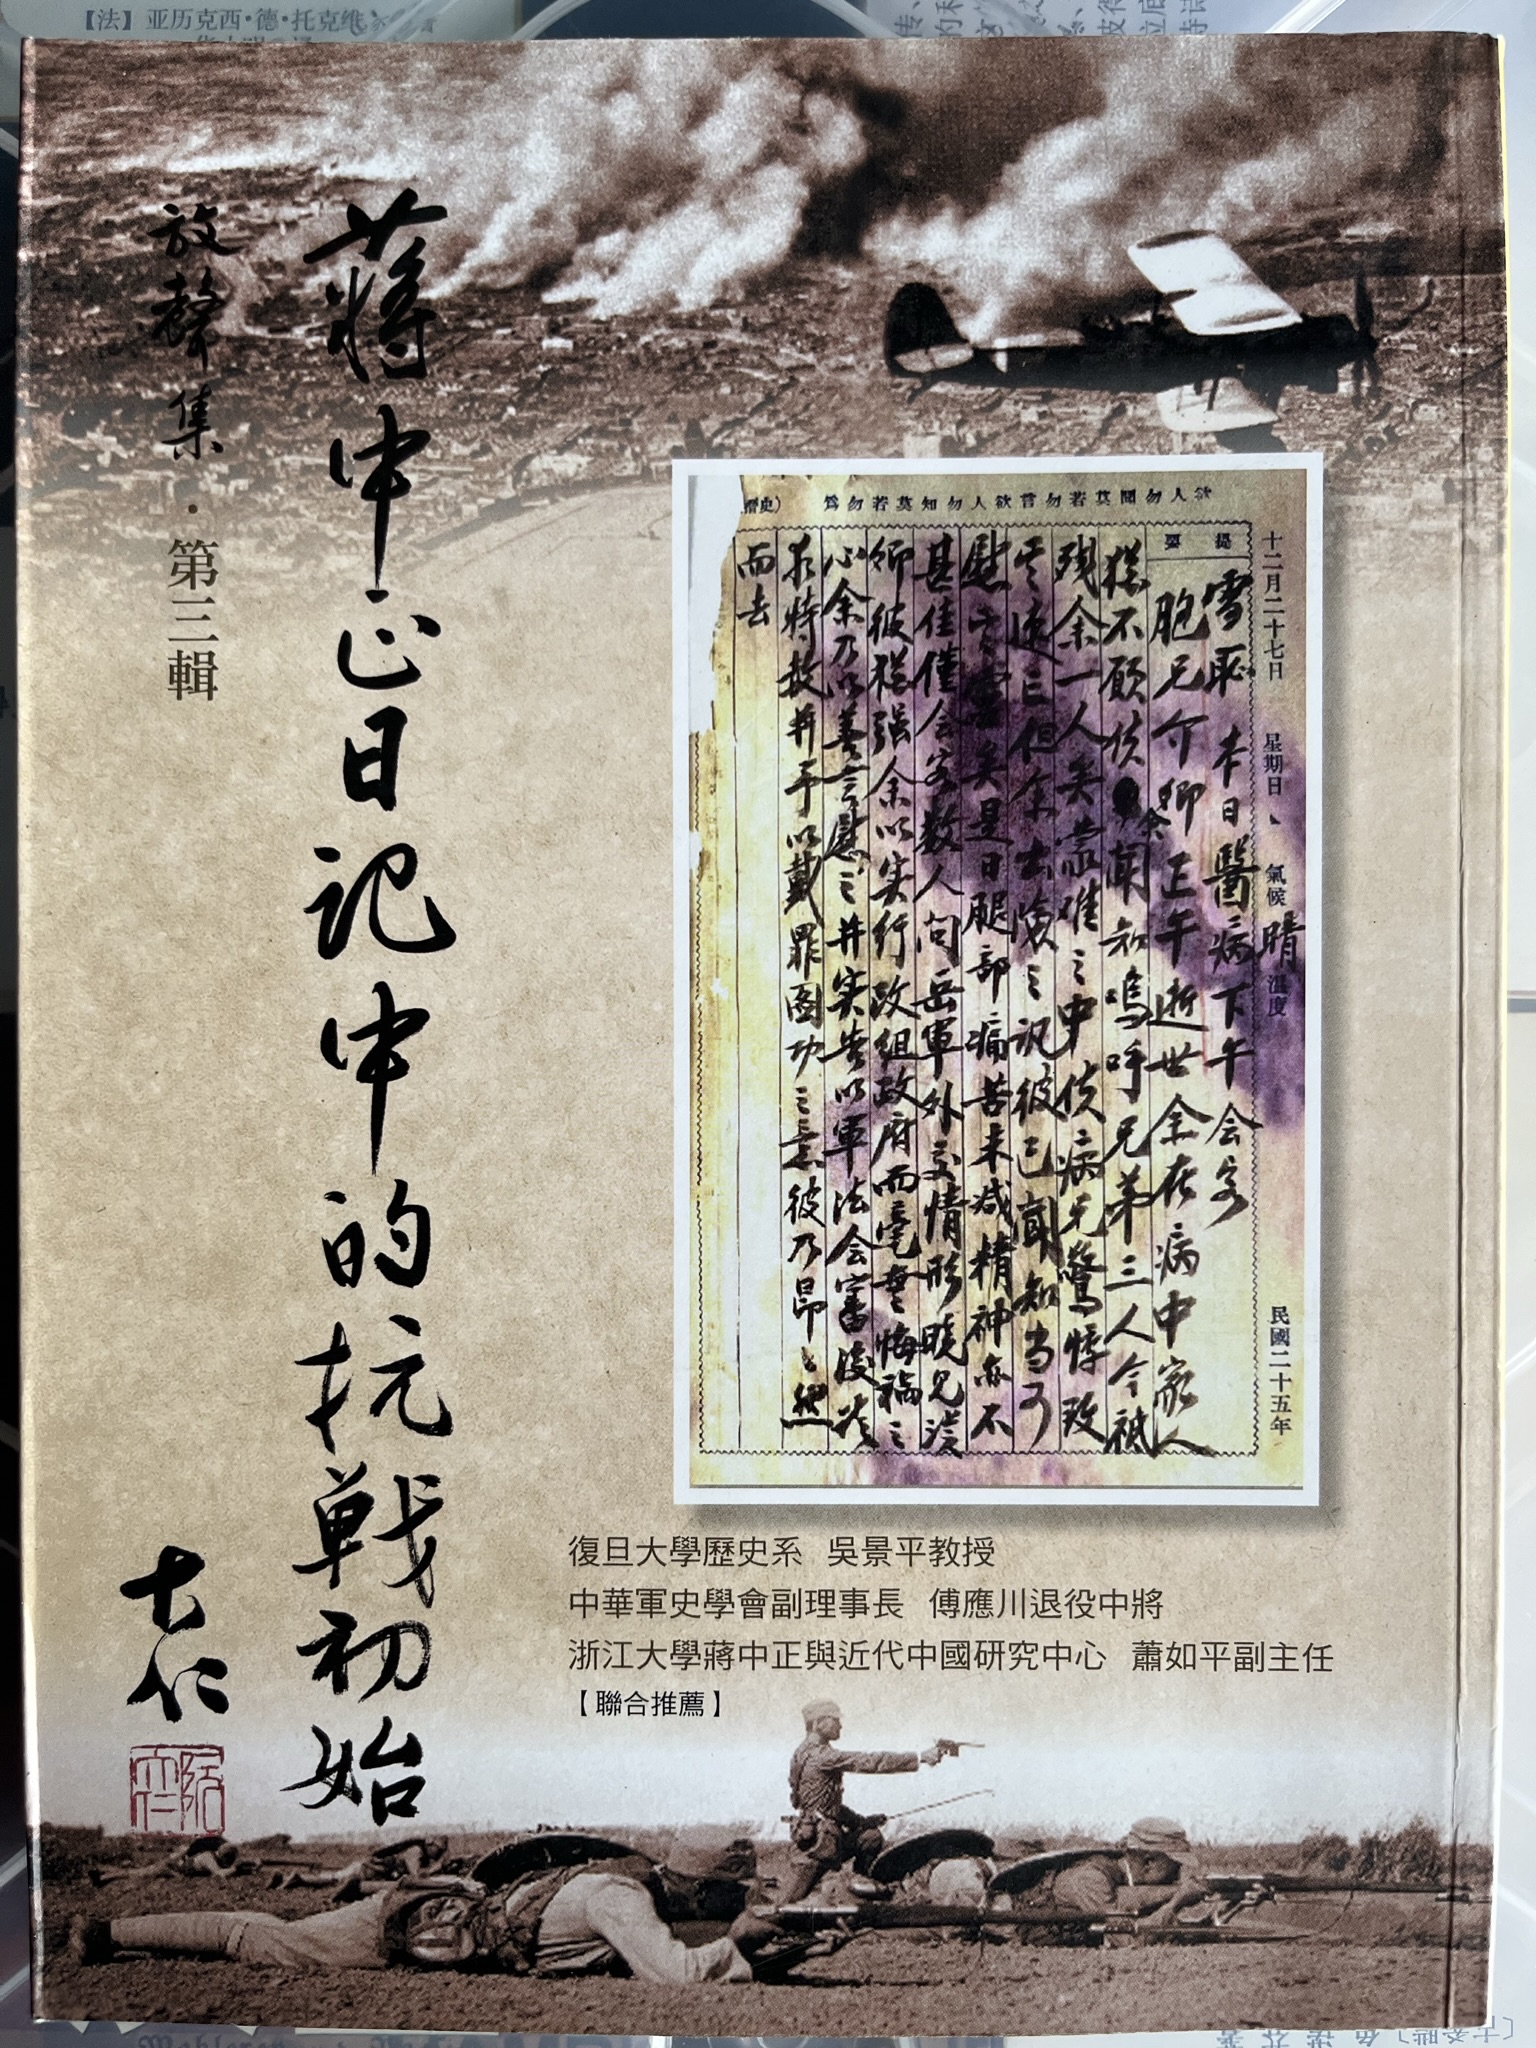 【法】亚历克西·德·托克维
蔣中正日記中的抗戰初始
放聲集·第三輯
大仁
阮大仁
欲人勿聞莫若勿言欲人勿知莫若勿爲
十二月二十七日 星期日 氣候 晴 溫度 民國二十五年
提要
雪恥 本日醫病下午会客
胞兄介卿正午逝世余在病中家人
猶不願使余聞知嗚呼兄弟三人今祗
殘余一人矣蒙難之中使病兄驚悸致
其速亡但余出險之訊彼已聞知当可
慰其靈矣是日腿部痛苦未減精神亦不
甚佳僅会客数人问岳軍外交情形晚見漢
卿彼猶强余以实行改組政府而毫無悔禍之
心余乃以善言慰之并实告以軍法会審後
求特赦并予以戴罪圖功之意彼乃昂昂然
而去
復旦大學歷史系 吳景平教授
中華軍史學會副理事長 傅應川退役中將
浙江大學蔣中正與近代中國研究中心 蕭如平副主任
【聯合推薦】